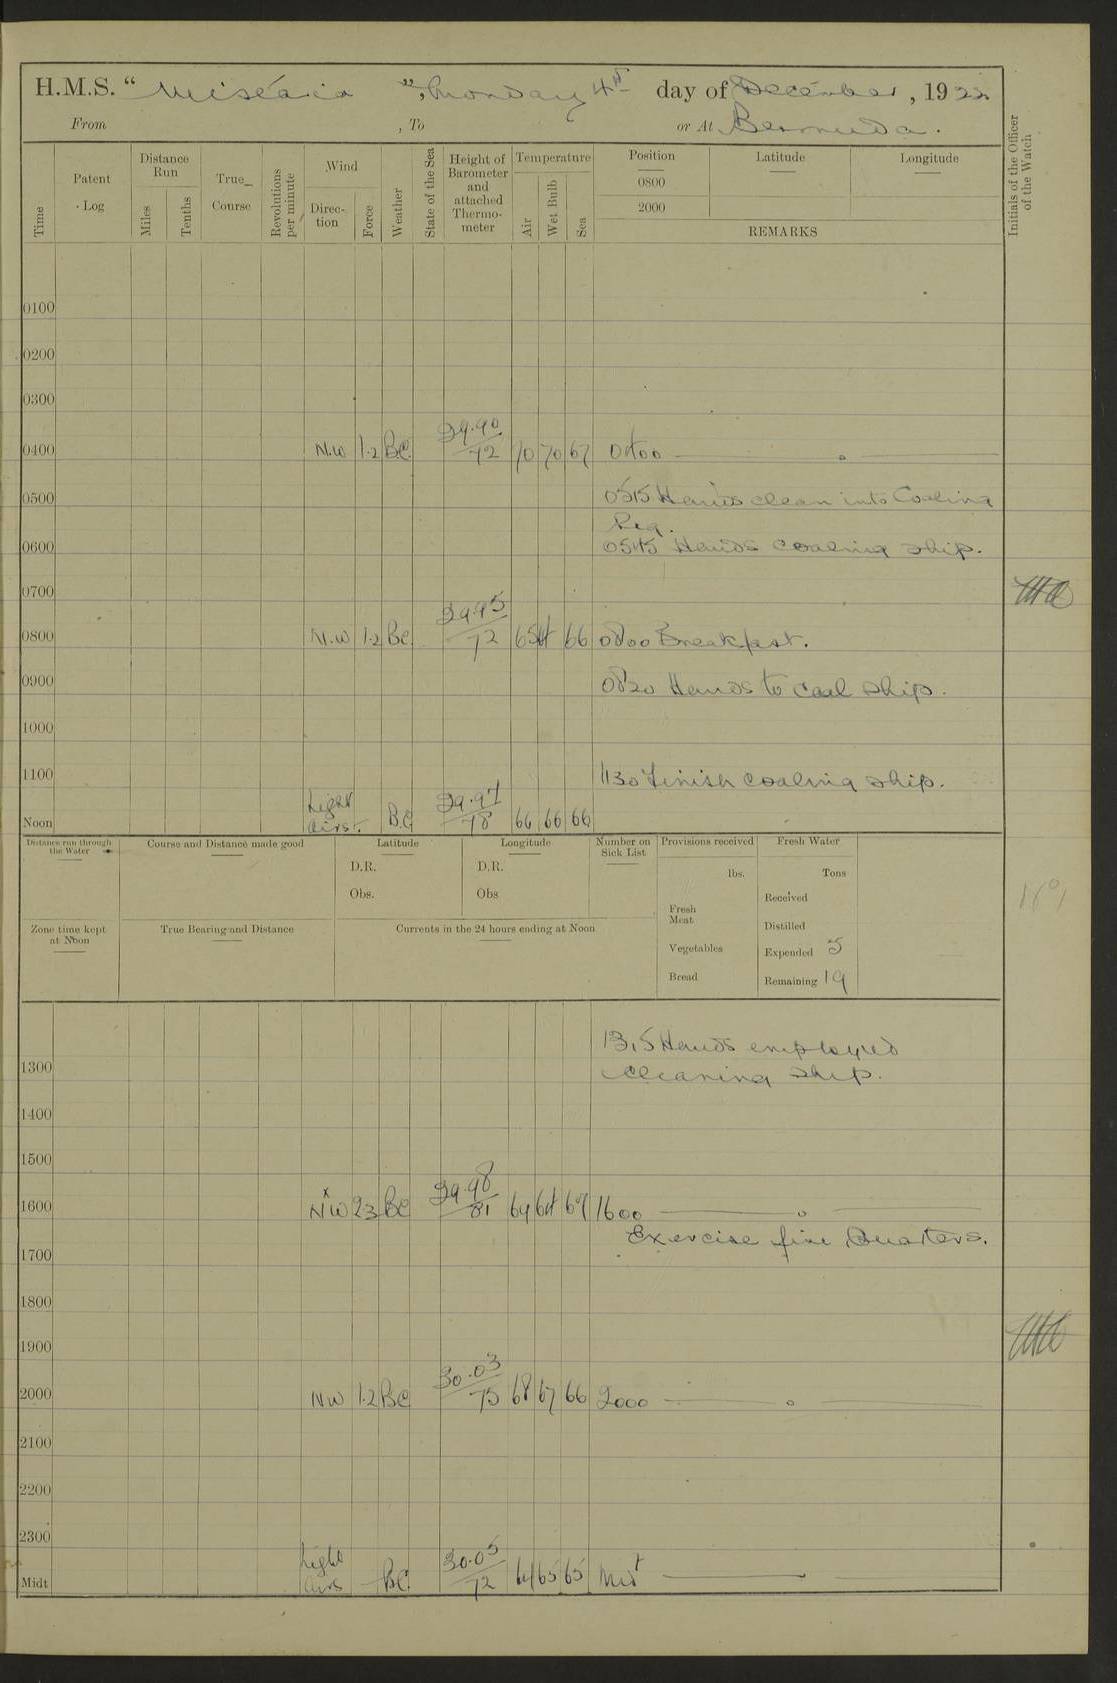 H.M.S. " Wistaria ", Monday 4th day of December, 1922
From , To or At Bermuda.
Time
Patent Log
Distance Run
Miles
Tenths
True Course
Revolutions per minute
Wind
Direc-tion
Force
Weather
State of the Sea
Height of Barometer and attached Thermo-meter
Temperature
Air
Wet Bulb
Sea
Position
0800
2000
Latitude
Longitude
REMARKS
Initials of the Officer of the Watch
0100
0200
0300
0400 N.W 1.2 BC 29.90 72 70 70 67 0400
0500 0515 Hands clean into Coaling
Rig.
0600 0545 Hands coaling ship.
0700
0800 N.W 1.2 BC 29.95 72 65 64 66 0800 Breakfast.
0900 0820 Hands to coal ship.
1000
1100 1130 Finish coaling ship.
Noon Light airs. B.C 29.97 78 66 66 66
Distance run through the Water
Course and Distance made good
Latitude
D.R.
Obs.
Longitude
D.R.
Obs
Number on Sick List
Provisions received
lbs.
Fresh Meat
Vegetables
Bread
Fresh Water
Tons
Received
Distilled
Expended 5
Remaining 19
Zone time kept at Noon
True Bearing and Distance
Currents in the 24 hours ending at Noon
1315 Hands employed
1300 cleaning ship.
1400
1500
1600 NxW 23 BC 29.98 81 69 64 67 1600
Exercise fire Quarters.
1700
1800
1900
2000 NW 1.2 BC 30.03 75 68 67 66 2000
2100
2200
2300
Midt Light airs BC 30.05 72 65 65 Midt